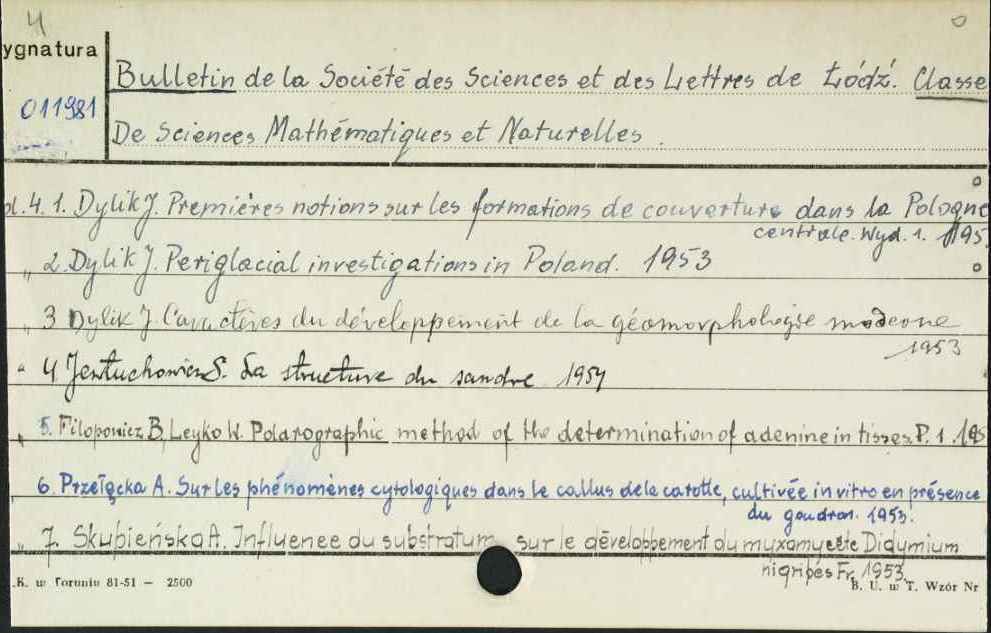 4
ygnatura
011981
Bulletin de la Société des Sciences et des Lettres de Łódź. Classe
De Sciences Mathématiques et Naturelles.
ol. 4. 1. Dylik J. Premières notions sur les formations de couverture dans la Pologne
centrale. Wyd. 1. 195
" 2. Dylik J. Periglacial investigations in Poland. 1953
3 Dylik J. Caractères du développement de la géomorphologie moderne
1953
" 4 S. La structure du sandre 1954
" 5. Filopowicz B, Leyko W. Polarographic method of the determination of adenine in tisses P. 1. 195
" 6. Przełęcka A. Sur les phénomènes cytologiques dans le callus de la carotte, cultivée in vitro en présence
du goudron. 1953.
" 7. Skupieńska A. Influence du substratum sur le développement du myxomycète Didymium
nigripes Fr. 1953.
.K. w Toruniu 81-51 — 2500
B. U. w T. Wzór Nr